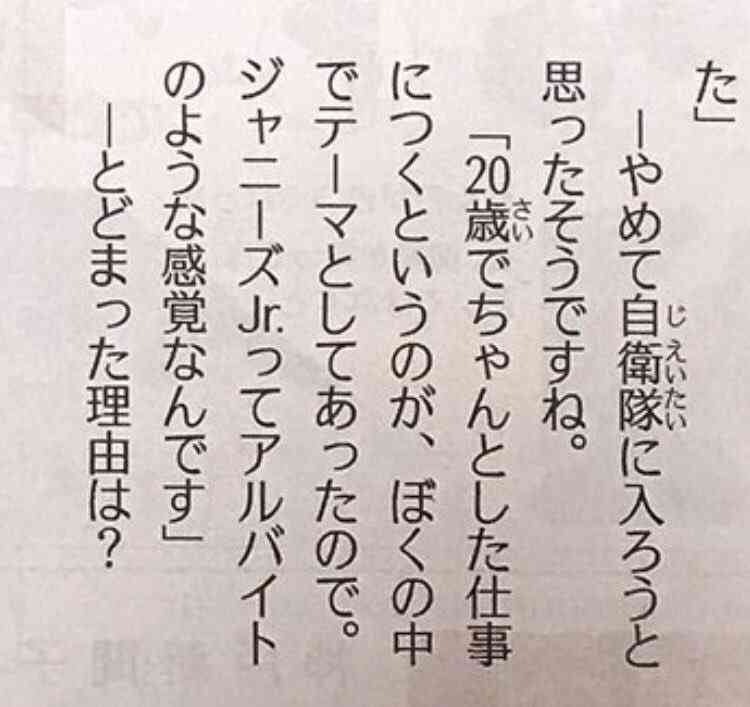 た」
―やめて自衛隊に入ろうと
思ったそうですね。
「20歳でちゃんとした仕事
につくというのが、ぼくの中
でテーマとしてあったので。
ジャニーズJr.ってアルバイト
のような感覚なんです」
―とどまった理由は？